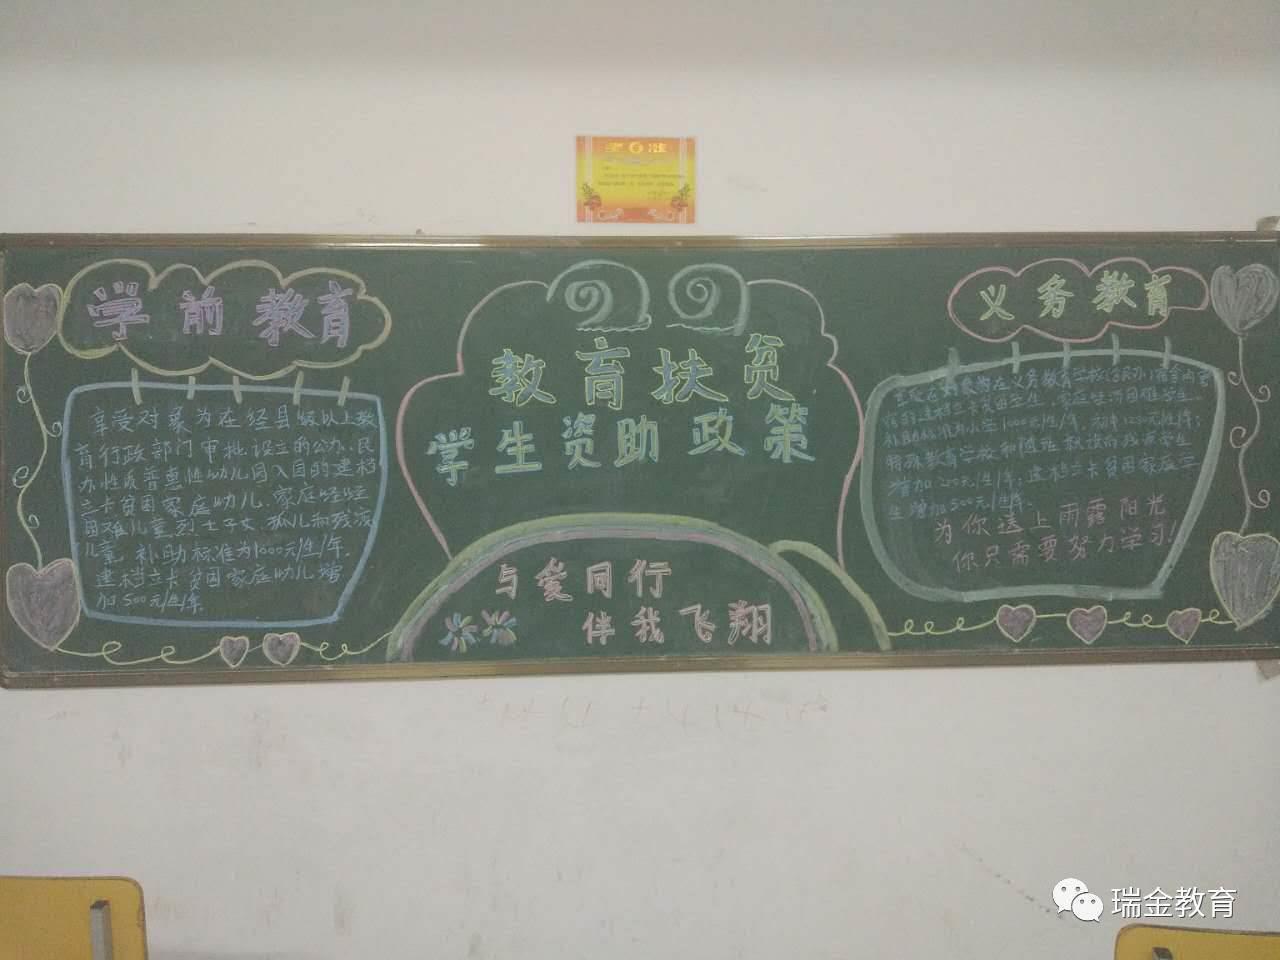 学前教育
享受对象为在经县级以上教
育行政部门审批设立的公办、民
办性质普惠性幼儿园入园的建档
立卡贫困家庭幼儿、家庭经济
困难儿童、烈士子女、孤儿和残疾
儿童。补助标准为1000元/生/年.
建档立卡贫困家庭幼儿增
加500元/生/年.
教育扶贫
学生资助政策
与爱同行
伴我飞翔
义务教育
在义务教育学校
小学1000元/生/年
特殊教育学校和随班就读的残疾学生
增加200元/生/年；建档立卡贫困家庭学
生增加500元/生/年.
为你送上雨露阳光
你只需要努力学习!
瑞金教育